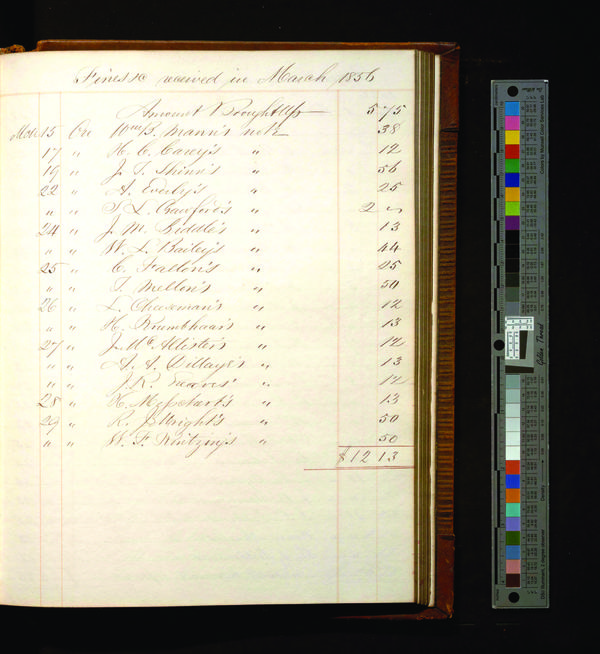 Fines &c received in March 1856
Amount Brought Up 5 75
Mch 15 On Wm B. Mann's note 38
17 " H. C. Carey's " 12
19 " J. S. Skinn's " 56
22 " A. " 25
" " S. L. Crawford's " 2 "
24 " J. M. Biddle's " 13
" " W. L. Bailey's " 44
25 " C. Fallon's " 25
" " S. Mellon's " 50
26 " L. Cheeseman's " 12
" " H. Krumbhaar's " 13
27 " J. McAllister's " 12
" " A. A. " 13
" " J. R. " 12
28 " H. " 13
29 " R. J. Wright's " 50
" " W. F. " 50
$12 13
Golden Thread